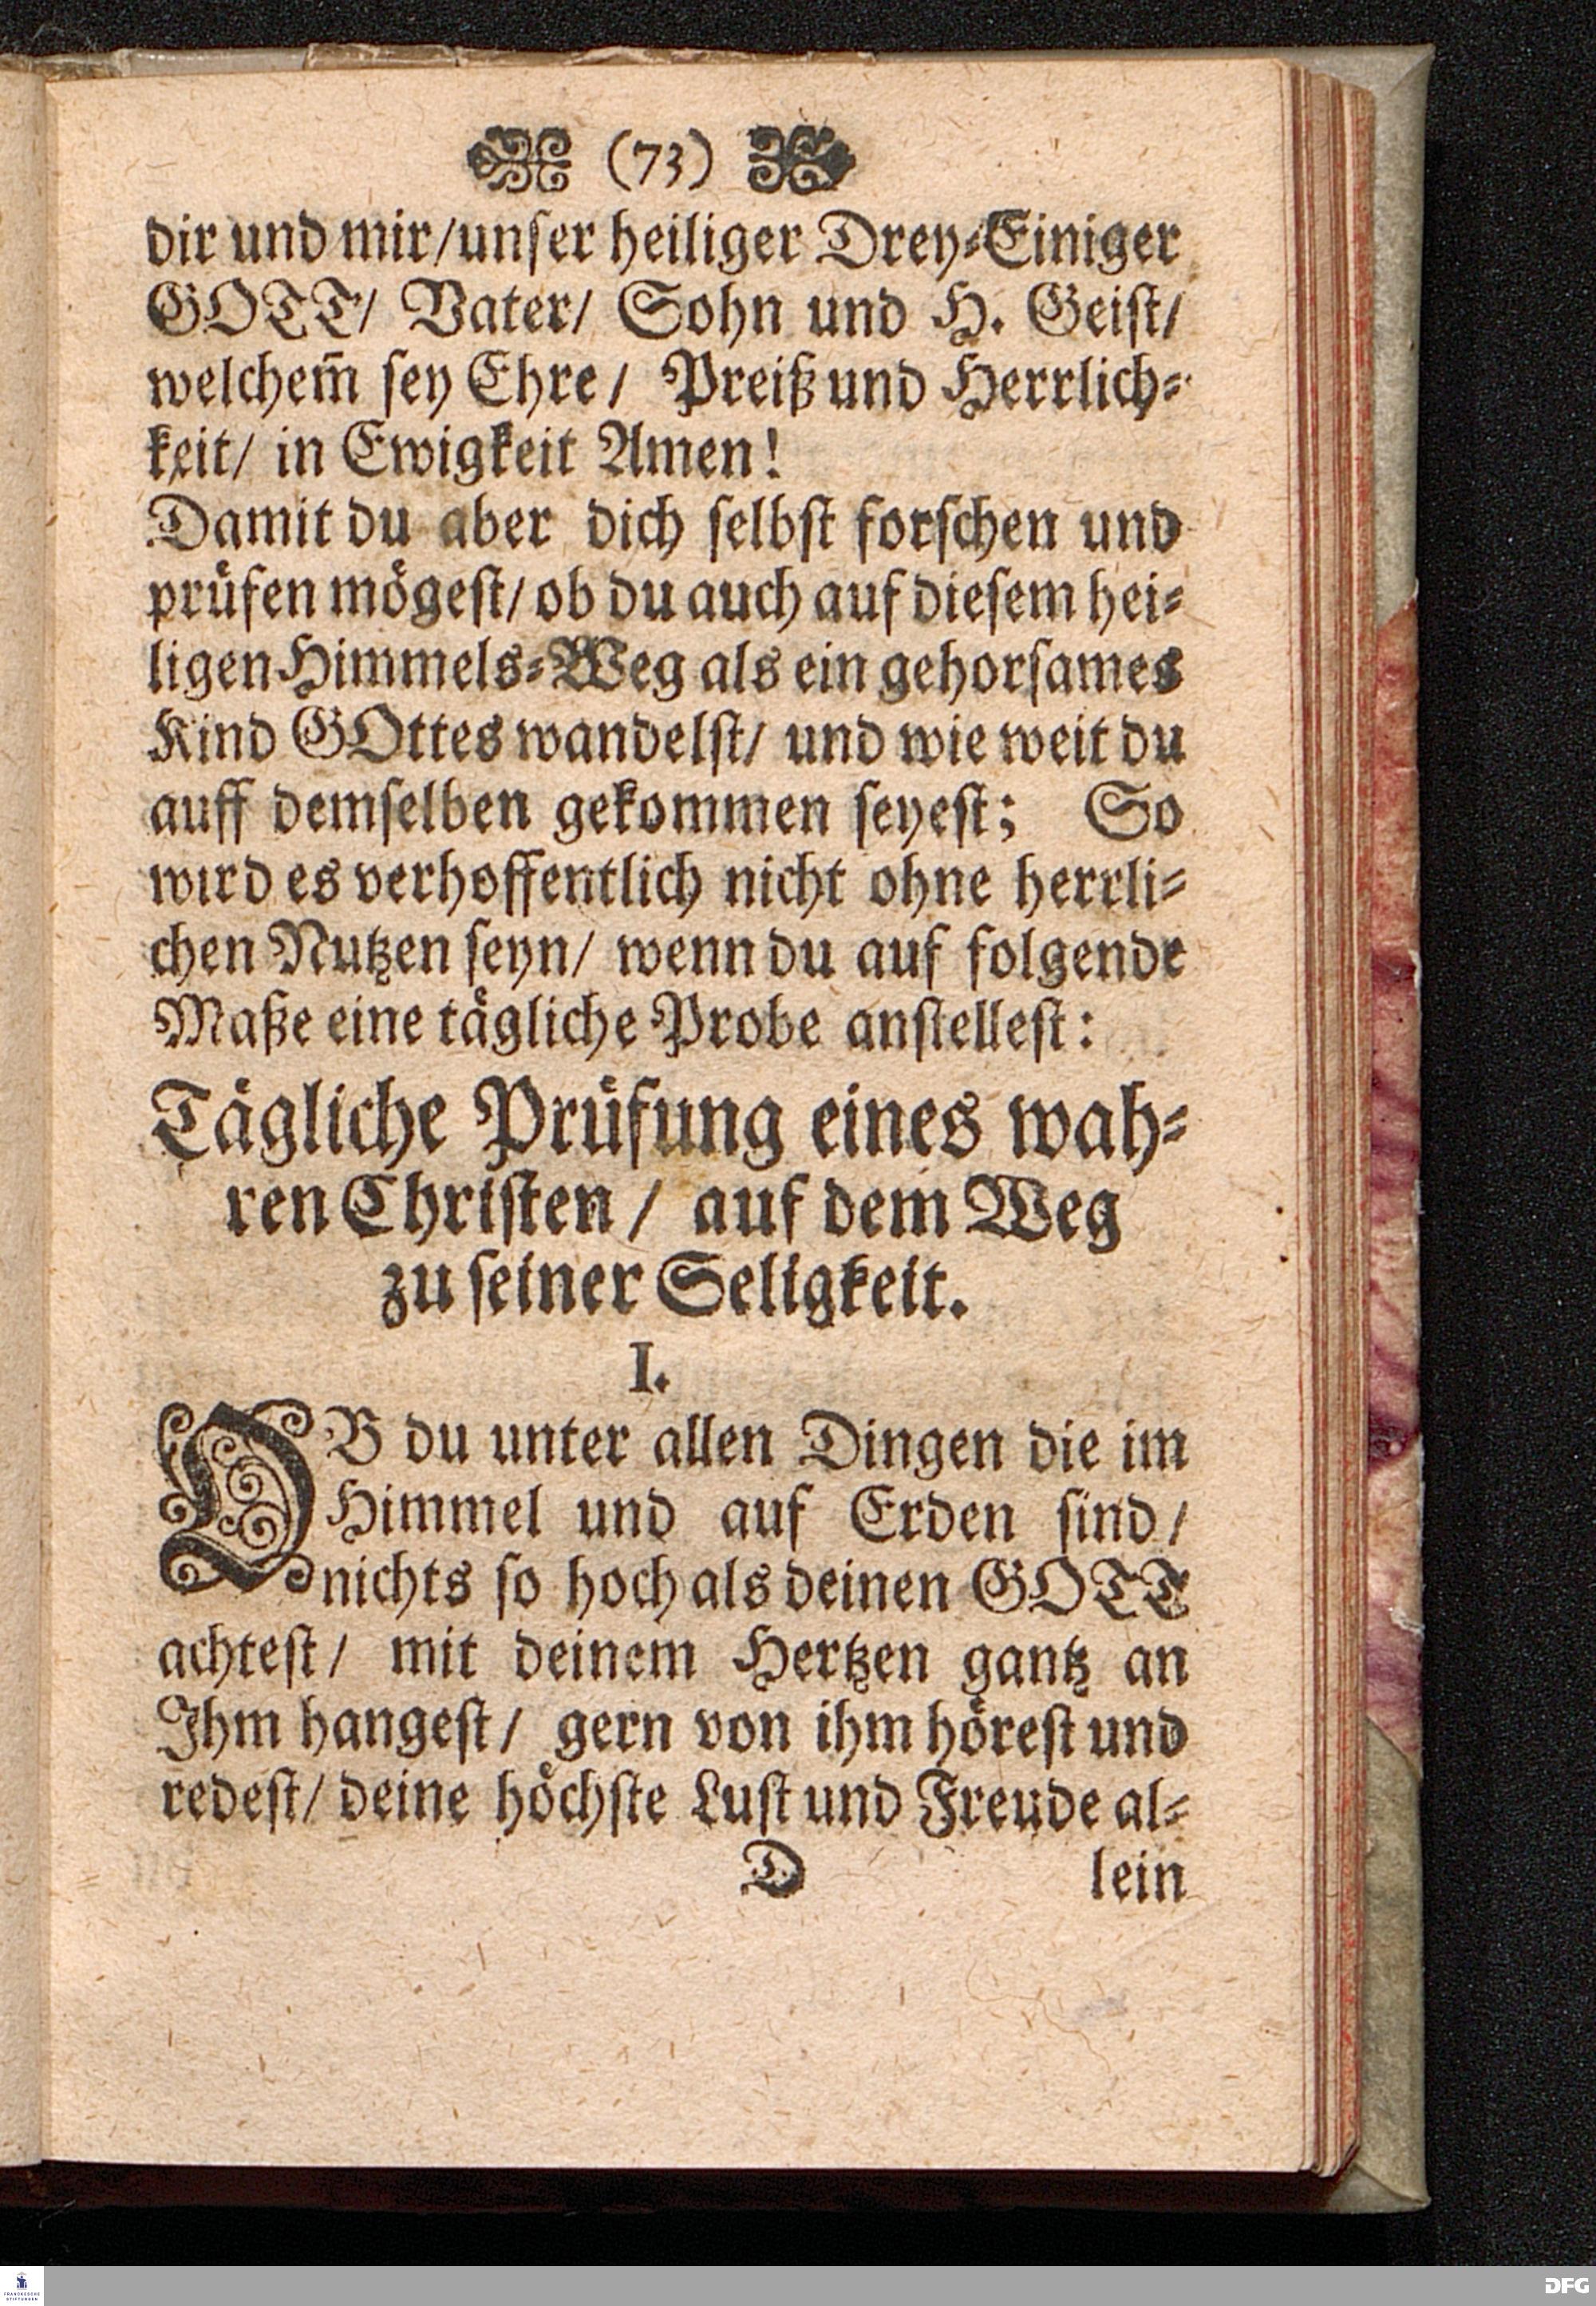 (73)
dir und mir/unser heiliger Drey-Einiger
GOTT/ Vater/ Sohn und H. Geist/
welchem̃ sey Ehre/ Preiß und Herrlich-
keit/ in Ewigkeit Amen!
Damit du aber dich selbst forschen und
prüfen mögest/ ob du auch auf diesem hei-
ligen Himmels-Weg als ein gehorsames
Kind GOttes wandelst/ und wie weit du
auff demselben gekommen seyest; So
wird es verhoffentlich nicht ohne herrli-
chen Nutzen seyn/ wenn du auf folgende
Maße eine tägliche Probe anstellest:
Tägliche Prüfung eines wah-
ren Christen/ auf dem Weg
zu seiner Seligkeit.
I.
OB du unter allen Dingen die im
Himmel und auf Erden sind/
nichts so hoch als deinen GOTT
achtest/ mit deinem Hertzen gantz an
Ihm hangest/ gern von ihm hörest und
redest/ deine höchste Lust und Freude al-
D lein
FRANCKESCHE
STIFTUNGEN
DFG